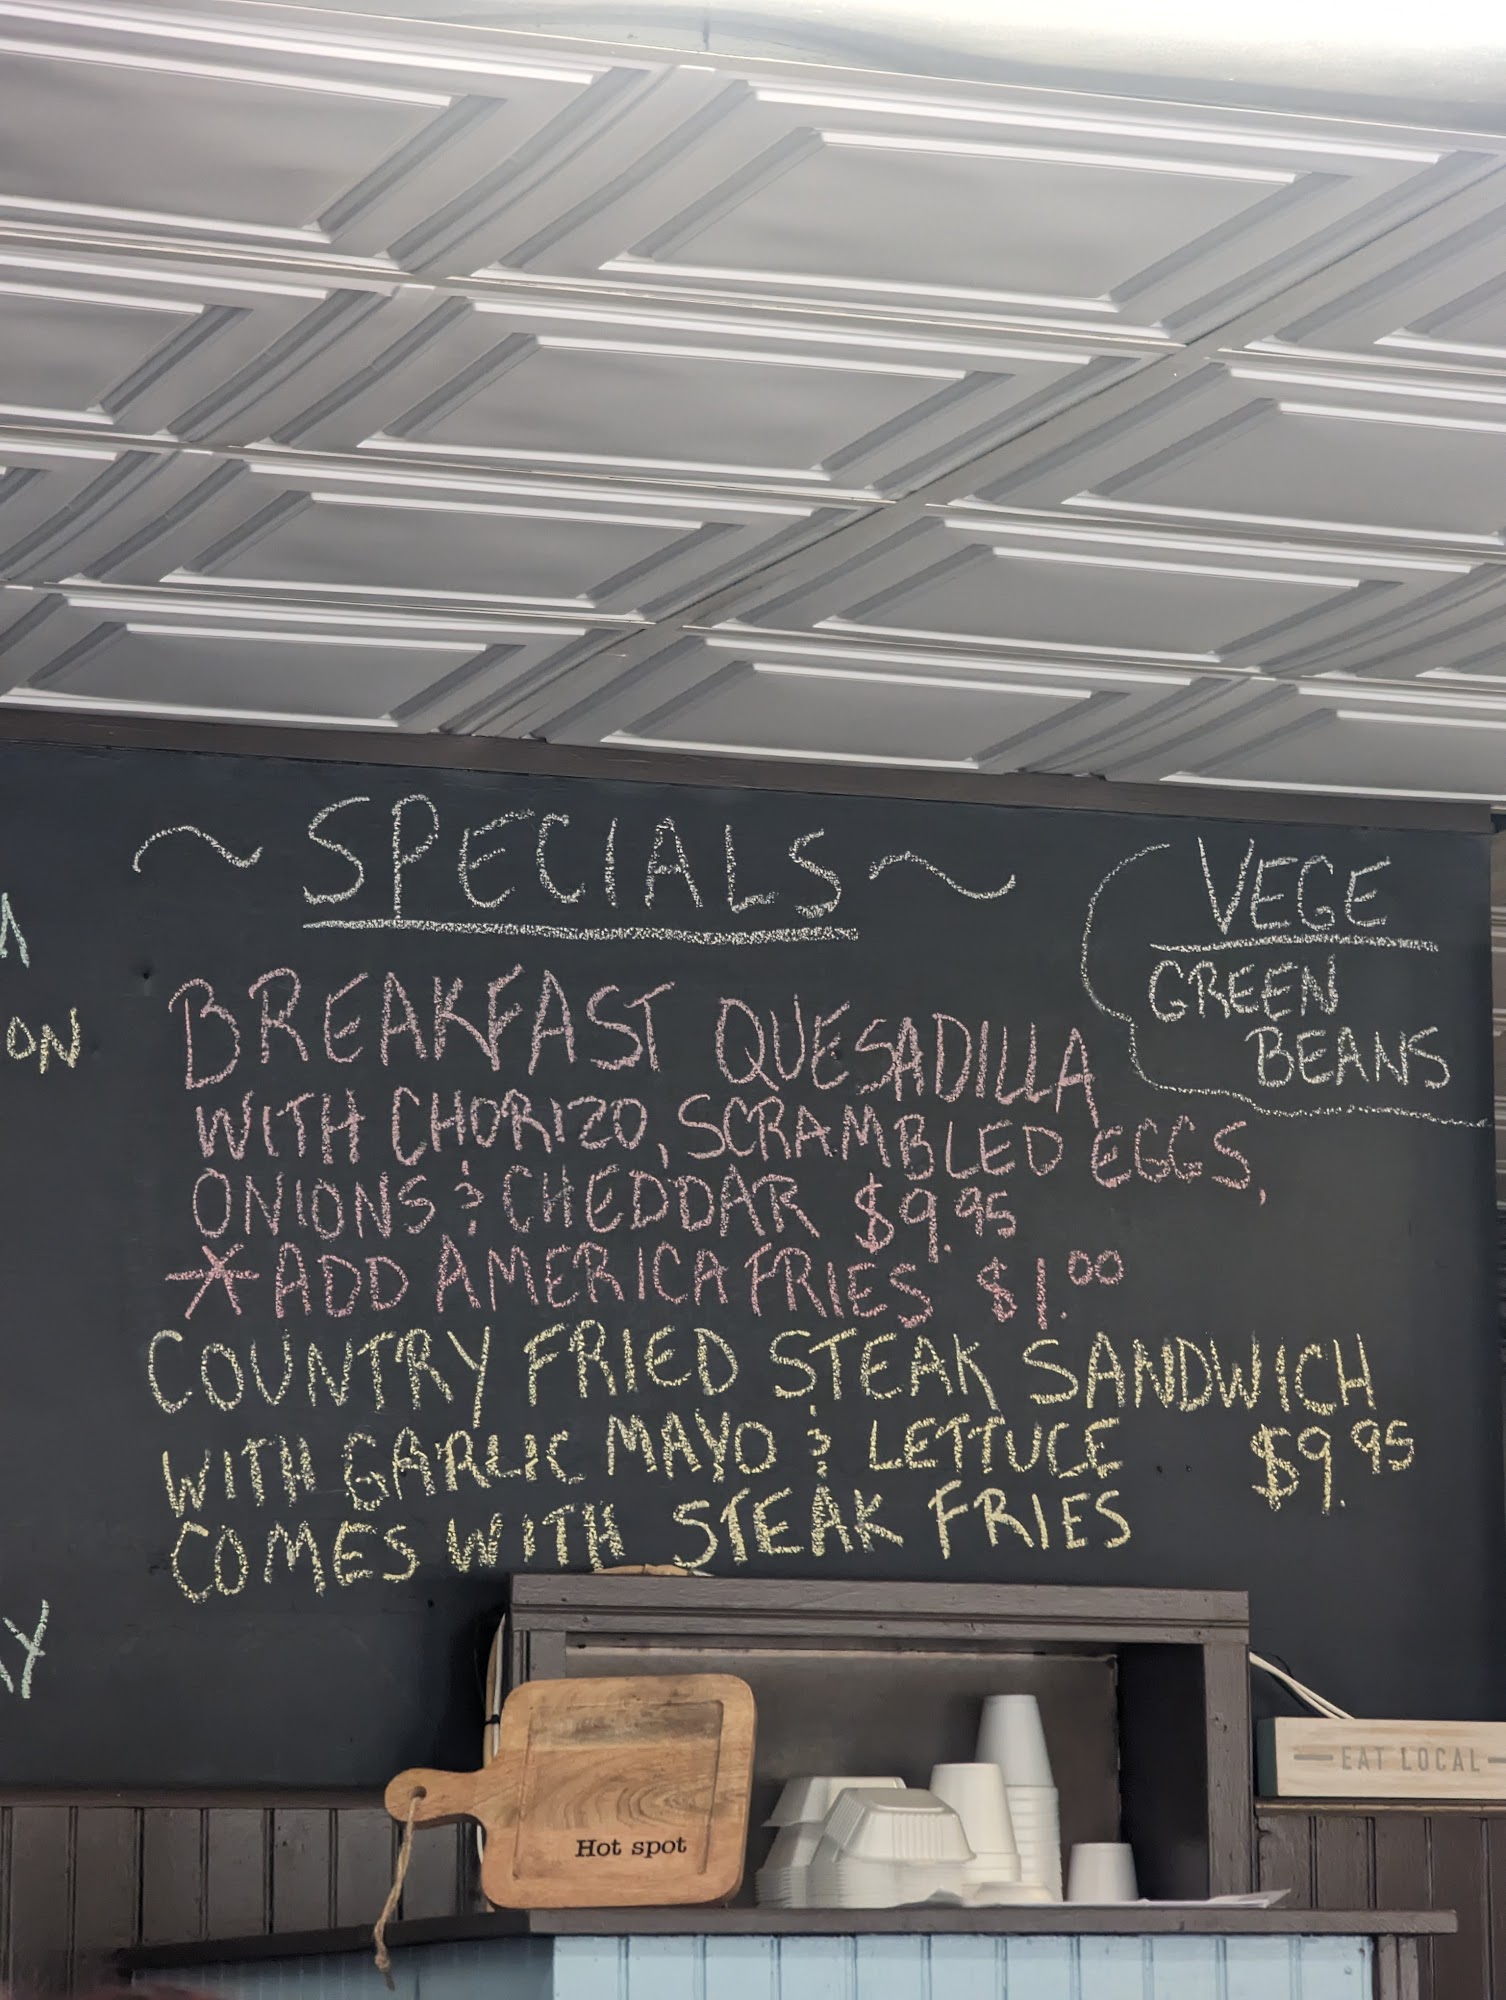 ~ SPECIALS ~
BREAKFAST QUESADILLA
WITH CHORIZO, SCRAMBLED EGGS,
ONIONS & CHEDDAR $9.95
*ADD AMERICA FRIES $1.00
COUNTRY FRIED STEAK SANDWICH
WITH GARLIC MAYO & LETTUCE $9.95
COMES WITH STEAK FRIES
VEGE
GREEN
BEANS
ON
Hot spot
EAT LOCAL